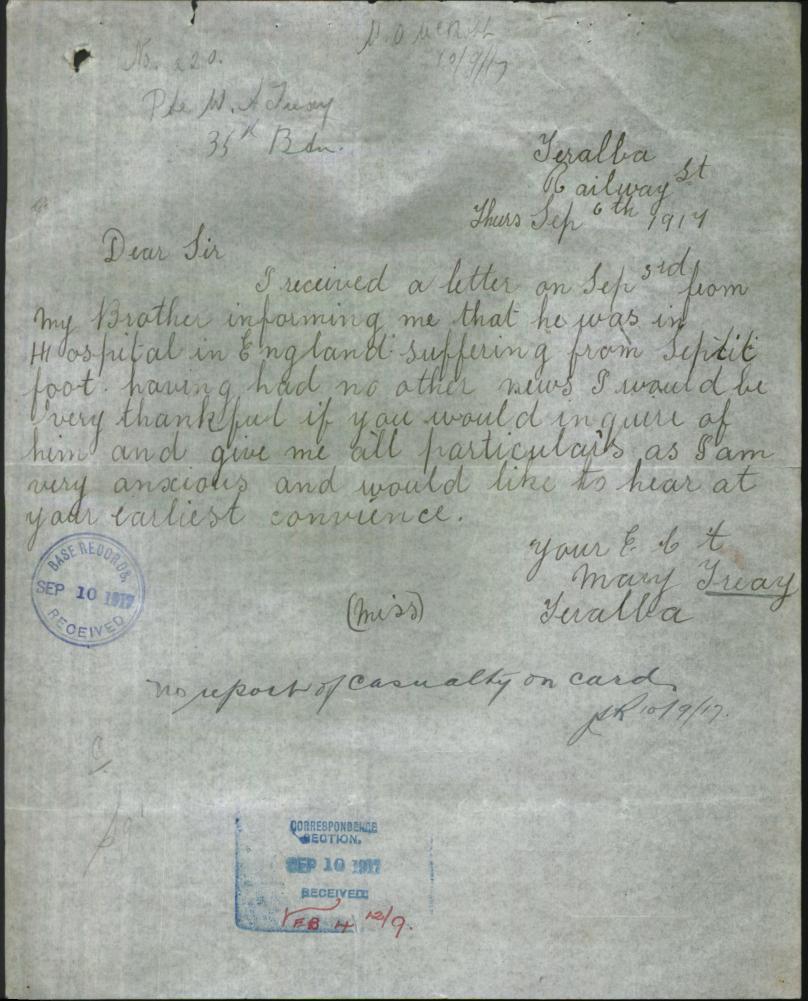 No. 220.
10/9/17
Pte W. A Treay
35th Bdn.
Teralba
Railway St
Thurs Sep 6th 1917
Dear Sir
I received a letter on Sep 3rd from
my Brother informing me that he was in
Hospital in England suffering from Septit
foot. having had no other news I would be
very thankful if you would inquere of
him and give me all particulars as I am
very anxious and would like to hear at
your earliest convience.
your E b t
Mary Treay
(Miss)
Teralba
BASE RECORDS,
SEP 10 1917
RECEIVED
no report of casualty on card
10/9/17.
CORRESPONDENCE
SECTION.
SEP 10 1917
RECEIVED
12/9.